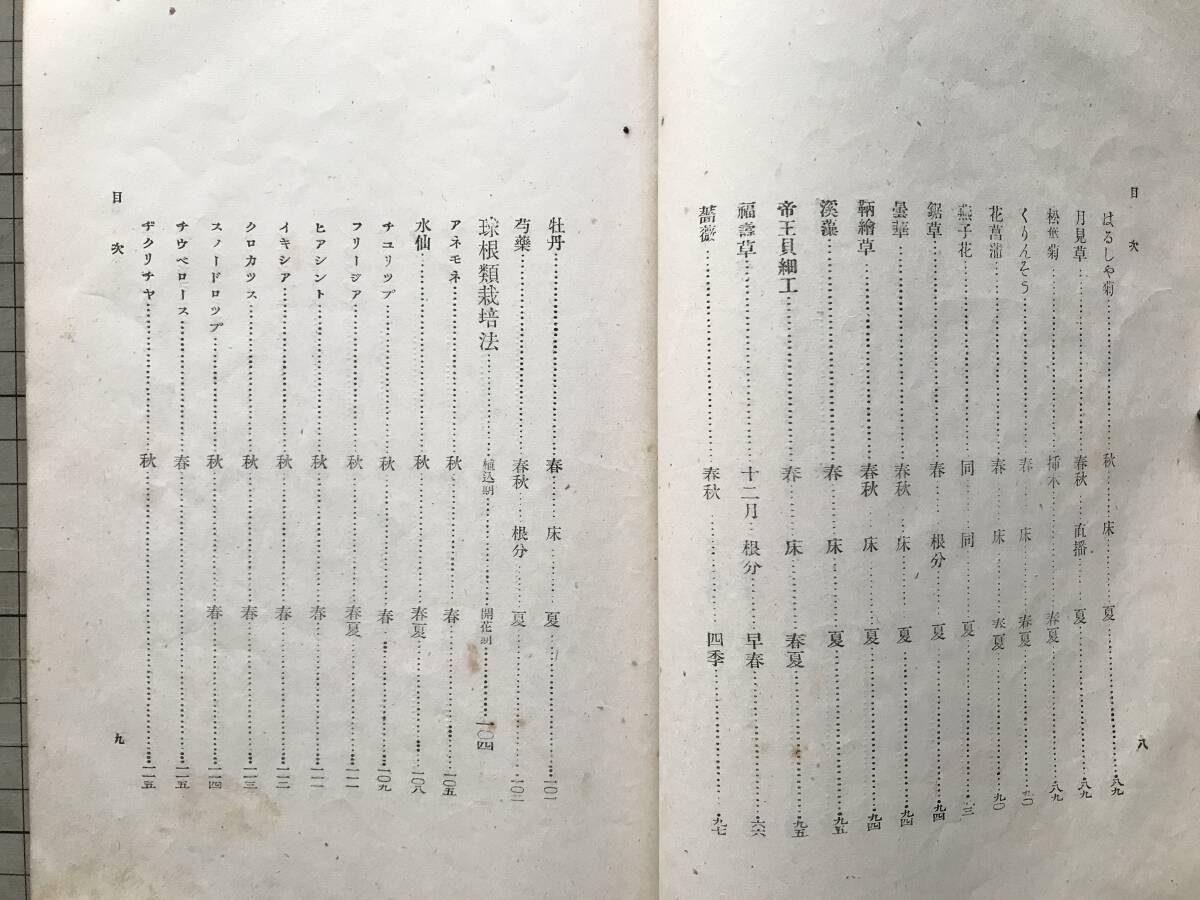 目次 八
はるしや菊……秋……床……夏……八九
月見草……春秋……直播……夏……八九
松葉菊……挿木……春夏……八九
くりんそう……春……床……春夏……九〇
花菖蒲……春……床……春夏……九〇
燕子花……同……同……夏……
鋸草……春……根分……夏……九四
曇華……春秋……床……夏……九四
鞆繪草……春秋……床……夏……九四
溪蓀……春……床……夏……九五
帝王貝細工……春……床……春夏……九五
福壽草……十二月……根分……早春……六六
薔薇……春秋……四季……九七
牡丹……春……床……夏……一〇一
芍藥……春秋……根分……夏……一〇二
球根類栽培法……植込期……開花期……一〇四
アネモネ……秋……春……一〇五
水仙……秋……春夏……一〇八
チユリツプ……秋……春……一〇九
フリージア……秋……春夏……一一一
ヒアシント……秋……春……一一一
イキシア……秋……春……一一二
クロカツス……秋……春……一一三
スノードロツプ……秋……春……一一四
チウベロース……春……一一五
ザクリチヤ……秋……一一五
目次 九